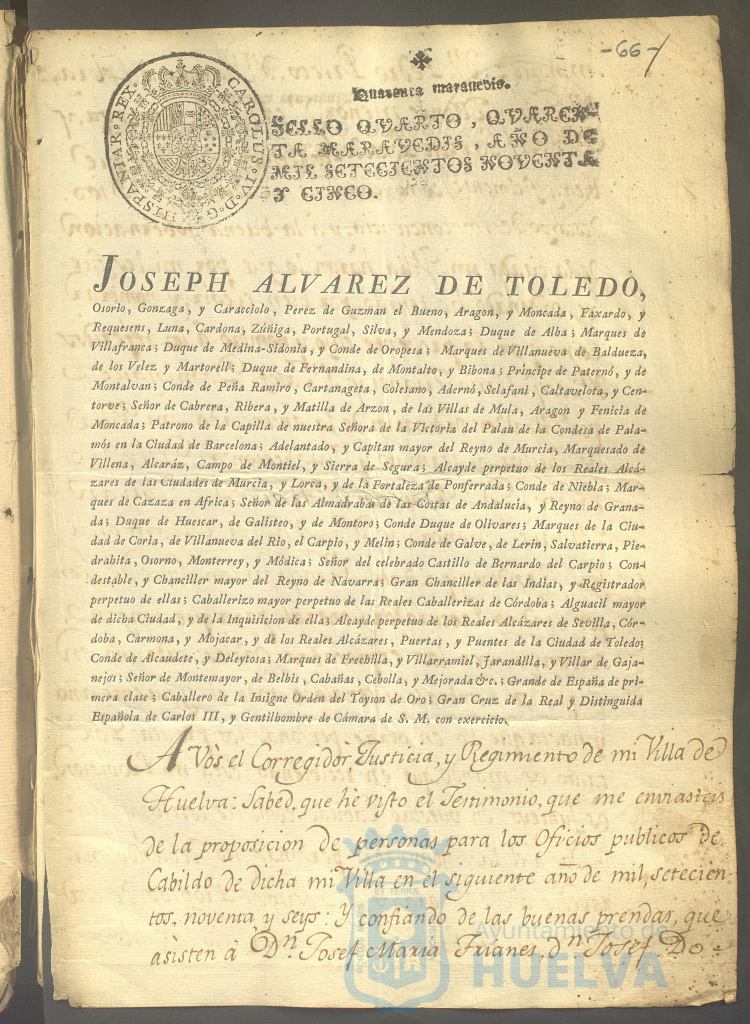 -66-
Quarenta maravedis.
CAROLUS·IV·D·G·HISPANIAR·REX·
SELLO QVARTO, QVAREN-
TA MARAVEDIS, AÑO DE
MIL SETECIENTOS NOVENTA
Y CINCO.
JOSEPH ALVAREZ DE TOLEDO,
Osorio, Gonzaga, y Caracciolo, Perez de Guzman el Bueno, Aragon, y Moncada, Faxardo, y
Requesens, Luna, Cardona, Zúñiga, Portugal, Silva, y Mendoza; Duque de Alba; Marques de
Villafranca; Duque de Medina-Sidonia, y Conde de Oropesa; Marques de Villanueva de Baldueza,
de los Velez y Martorell; Duque de Fernandina, de Montalto, y Bibona; Príncipe de Paternó, y de
Montalvan; Conde de Peña Ramiro, Cartanageta, Colesano, Adernó, Sclafani, Caltavelota, y Cen-
torve; Señor de Cabrera, Ribera, y Matilla de Arzon, de las Villas de Mula, Aragon y Fenicia de
Moncada; Patrono de la Capilla de nuestra Señora de la Victoria del Palau de la Condesa de Pala-
mós en la Ciudad de Barcelona; Adelantado, y Capitan mayor del Reyno de Murcia, Marquesado de
Villena, Alcaráz, Campo de Montiel, y Sierra de Segura; Alcayde perpetuo de los Reales Alcá-
zares de las Ciudades de Murcia, y Lorca, y de la Fortaleza de Ponferrada; Conde de Niebla; Mar-
ques de Cazaza en Africa; Señor de las Almadrabas de las Costas de Andalucía, y Reyno de Grana-
da; Duque de Huescar, de Galisteo, y de Montoro; Conde Duque de Olivares; Marques de la Ciu-
dad de Coria, de Villanueva del Rio, el Carpio, y Melin; Conde de Galve, de Lerin, Salvatierra, Pie-
drahita, Osorno, Monterrey, y Módica; Señor del celebrado Castillo de Bernardo del Carpio; Con-
destable, y Chanciller mayor del Reyno de Navarra; Gran Chanciller de las Indias, y Registrador
perpetuo de ellas; Caballerizo mayor perpetuo de las Reales Caballerizas de Córdoba; Alguacil mayor
de dicha Ciudad, y de la Inquisicion de ella; Alcayde perpetuo de los Reales Alcázares de Sevilla, Cór-
doba, Carmona, y Mojacar, y de los Reales Alcázares, Puertas, y Puentes de la Ciudad de Toledo;
Conde de Alcaudete, y Deleytosa; Marques de Frechilla, y Villarramiel, Jarandilla, y Villar de Gaja-
nejos; Señor de Montemayor, de Belbis, Cabañas, Cebolla, y Mejorada &c.; Grande de España de pri-
mera clase; Caballero de la Insigne Orden del Toyson de Oro; Gran Cruz de la Real y Distinguida
Española de Carlos III, y Gentilhombre de Cámara de S. M. con exercicio.
A Vòs el Corregidòr, Justicia, y Regimiento de mi Villa de
Huelva: Sabed, que hè visto el Testimonio, que me enviasteis
de la proposicion de personas para los Oficios publicos de
Cabildo de dicha mi Villa en el siguiente año de mil, setecien-
tos, noventa y seys: Y confiando de las buenas prendas, que
asisten à Dn. Josef Maria Frianes, dn. Josef Do-
Ayuntamiento de
HUELVA